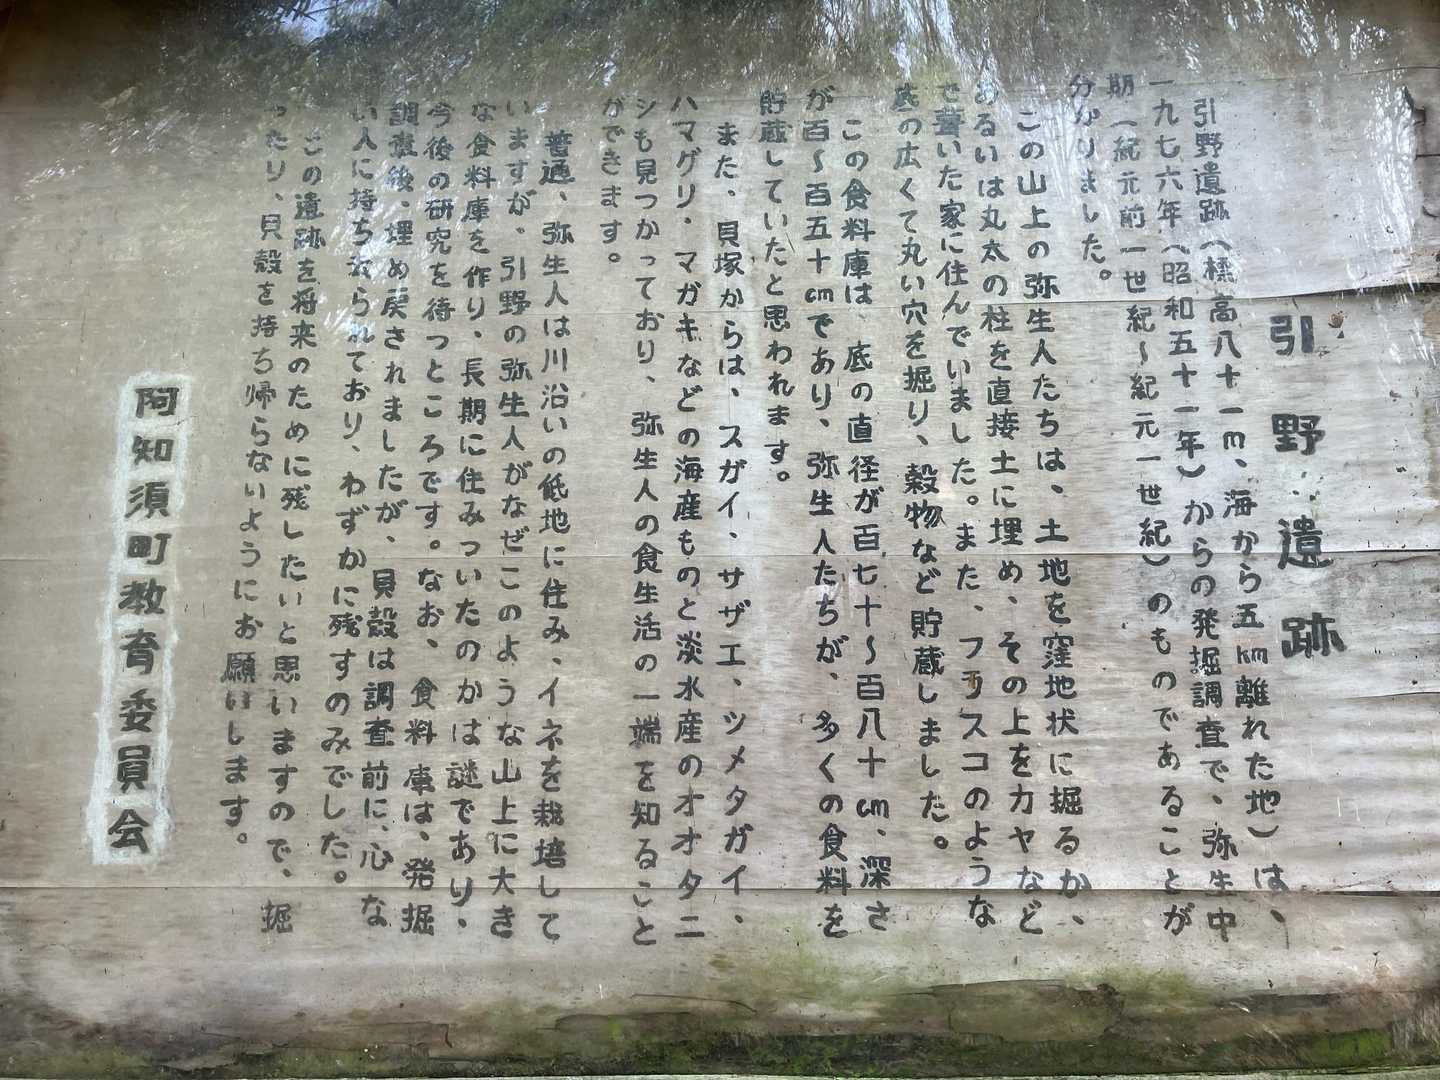 引野遺跡
引野遺跡（標高八十一m、海から五km離れた地）は、
一九七六年（昭和五十一年）からの発掘調査で、弥生中
期（紀元前一世紀～紀元一世紀）のものであることが
分かりました。
この山上の弥生人たちは、土地を窪地状に掘るか、
あるいは丸太の柱を直接土に埋め、その上をカヤなど
で葺いた家に住んでいました。また、フラスコのような
底の広くて丸い穴を掘り、穀物など貯蔵しました。
この食料庫は、底の直径が百七十～百八十cm、深さ
が百～百五十cmであり、弥生人たちが、多くの食料を
貯蔵していたと思われます。
また、貝塚からは、スガイ、サザエ、ツメタガイ、
ハマグリ・マガキなどの海産ものと淡水産のオオタニ
シも見つかっており、弥生人の食生活の一端を知ること
ができます。
普通、弥生人は川沿いの低地に住み、イネを栽培して
いますが、引野の弥生人がなぜこのような山上に大き
な食料庫を作り、長期に住みついたのかは謎であり、
今後の研究を待つところです。なお、食料庫は、発掘
調査後、埋め戻されましたが、貝殻は調査前に、心な
い人に持ち去られており、わずかに残すのみでした。
この遺跡を将来のために残したいと思いますので、掘
ったり、貝殻を持ち帰らないようにお願いします。
阿知須町教育委員会